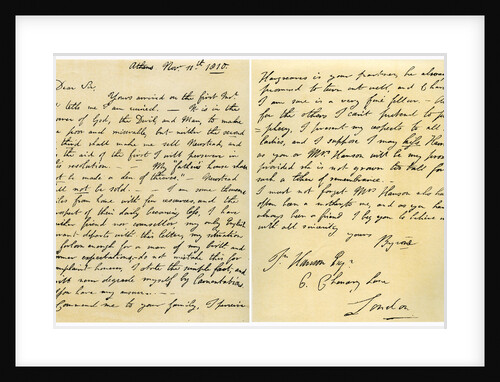 Athens Nov. 11th 1810.
Dear Sir,
Yours arrived on the first Inst.
tells me I am ruined. — It is in the
power of God, the Devil, and Man, to make
poor and miserable, but neither the second
third shall make me sell Newstead, and
the aid of the first I will persevere in
resolution. — My father's house shall
not be made a den of thieves. — Newstead
will not be sold. — I am some thousand
miles from home with few resources, and the
prospect of their daily becoming less, I have
neither friend nor counsellor, my only English
servant departs with this letter, my situation
forlorn enough for a man of my birth and
former expectations, do not mistake this for
complaint however, I state the simple fact, and
will never degrade myself by lamentations
You have my answer. —
Commend me to your family, I perceive
Hargreaves is your partner, he always
promised to turn out well, and
I am sure is a fine fellow. —
for the others I can't pretend to
I present my respects to all
ladies, and I suppose I may kiss
as you or Mrs. Hanson will be my
provided she is not grown too tall for
such a token of remembrance. —
I must not forget Mrs. Hanson who has
often been a mother to me, and as you have
always been a friend I beg you to believe
with all sincerity
yours
Byron
Jn. Hanson Esqr.
6. Chancery Lane
London